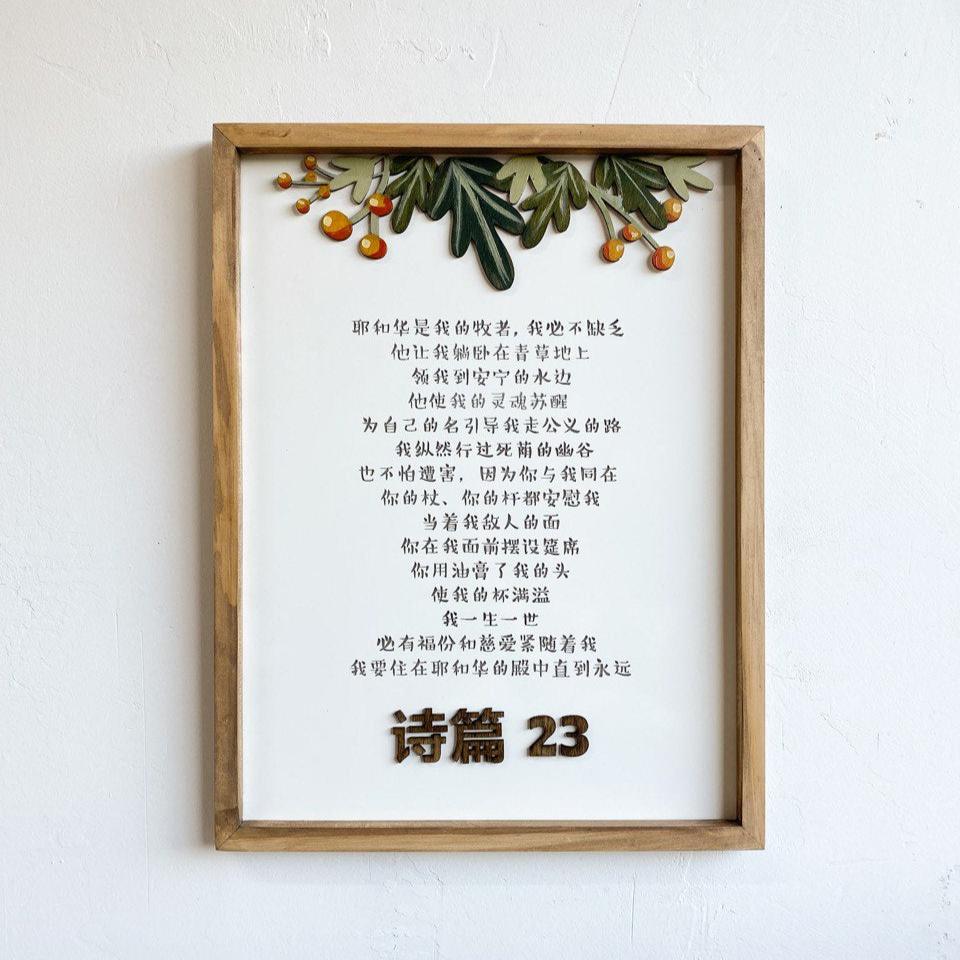 耶和华是我的牧者，我必不缺乏
他让我躺卧在青草地上
领我到安宁的水边
他使我的灵魂苏醒
为自己的名引导我走公义的路
我纵然行过死荫的幽谷
也不怕遭害，因为你与我同在
你的杖、你的杆都安慰我
当着我敌人的面
你在我面前摆设筵席
你用油膏了我的头
使我的杯满溢
我一生一世
必有福份和慈爱紧随着我
我要住在耶和华的殿中直到永远
诗篇 23